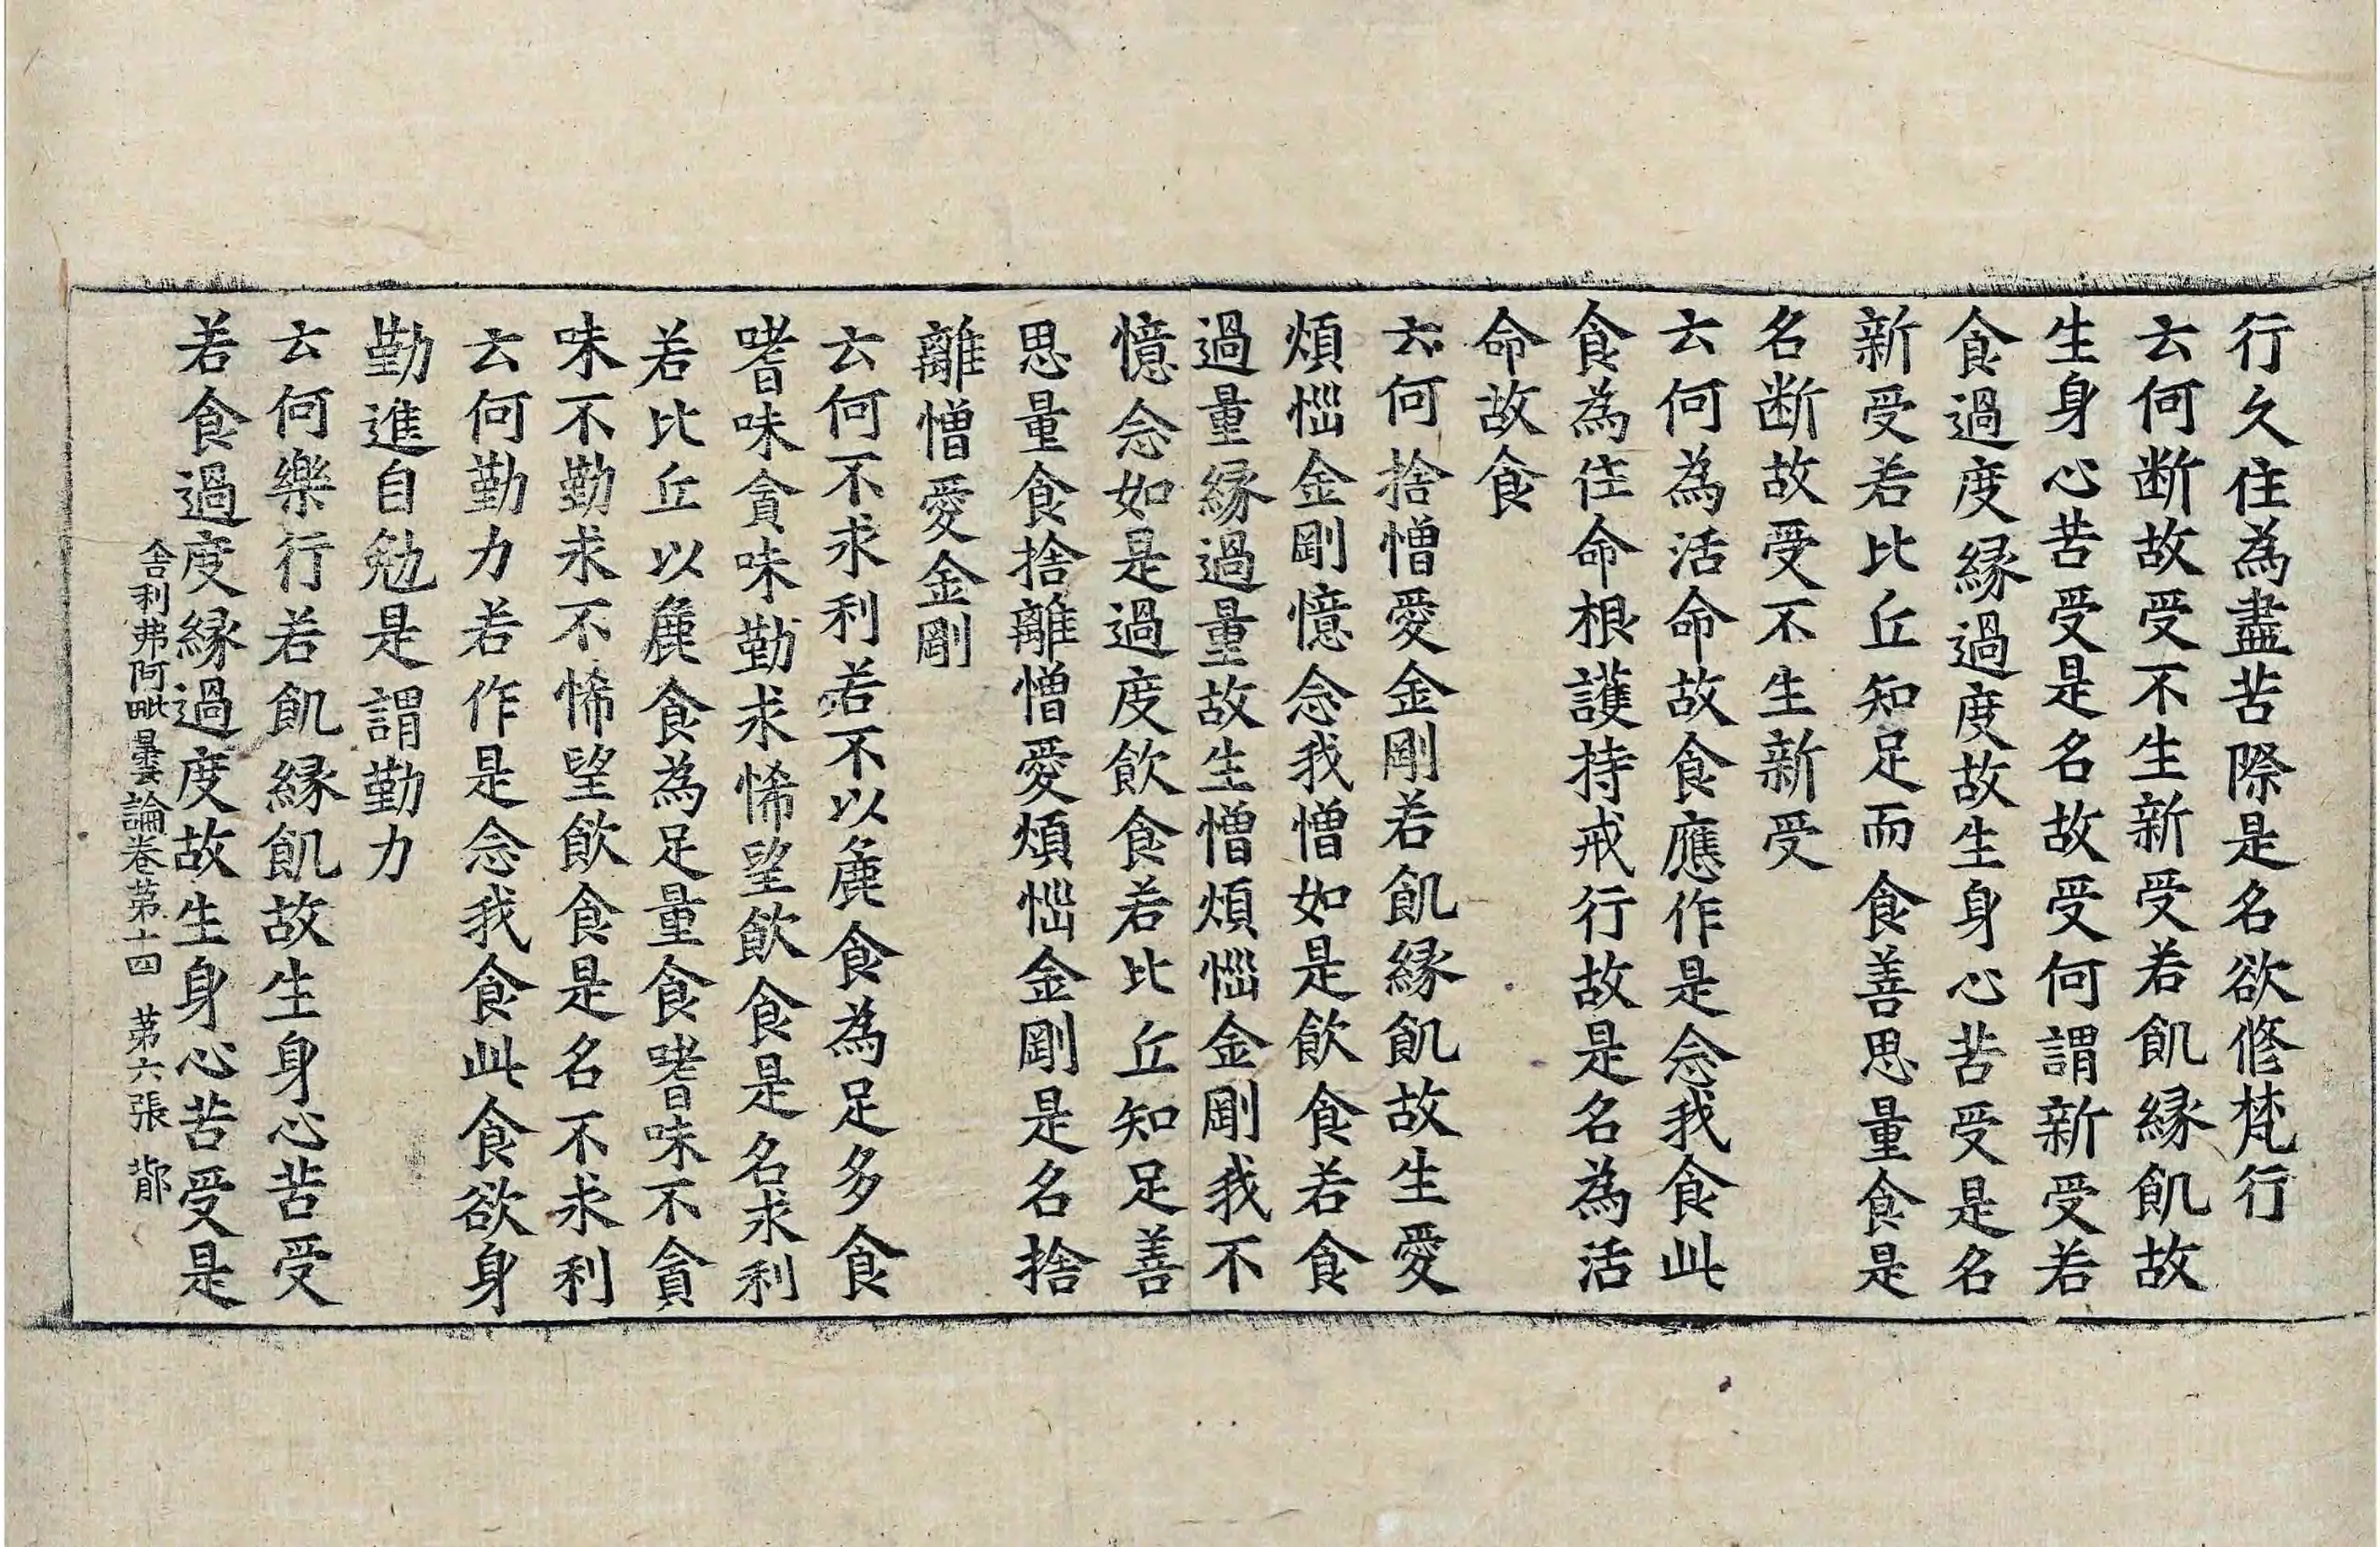 行久住為盡苦際是名欲修梵行
云何断故受不生新受若飢縁飢故
生身心苦受是名故受何謂新受若
食過度縁過度故生身心苦受是名
新受若比丘知足而食善思量食是
名断故受不生新受
云何為活命故食應作是念我食此
食為住命根護持戒行故是名為活
命故食
云何捨憎愛金剛若飢縁飢故生愛
煩惱金剛憶念我憎如是飲食若食
過量縁過量故生憎煩惱金剛我不
憶念如是過度飲食若比丘知足善
思量食捨離憎愛煩惱金剛是名捨
離憎愛金剛
云何不求利若不以麁食為足多食
嗜味貪味勤求悕望飲食是名求利
若比丘以麁食為足量食嗜味不貪
味不勤求不悕望飲食是名不求利
云何勤力若作是念我食此食欲身
勤進自勉是謂勤力
云何樂行若飢縁飢故生身心苦受
若食過度縁過度故生身心苦受是
舍利弗阿毗曇論卷第十四 第六張